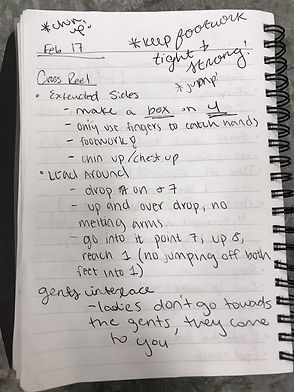 *chin
up!
*keep footwork
Feb 17
tight &
strong!
*jump!
Cross Reel
• Extended Sides
- make a box on 4
- only use fingers to catch hands
- footwork!
- chin up/chest up
• Lead Around
- drop # on 7
- up and over drop, no
melting arms
- go into it point 7, up 8,
reach 1 (no jumping off both
feet into 1)
gents interlace
- ladies don't go towards
the gents, they come
to you